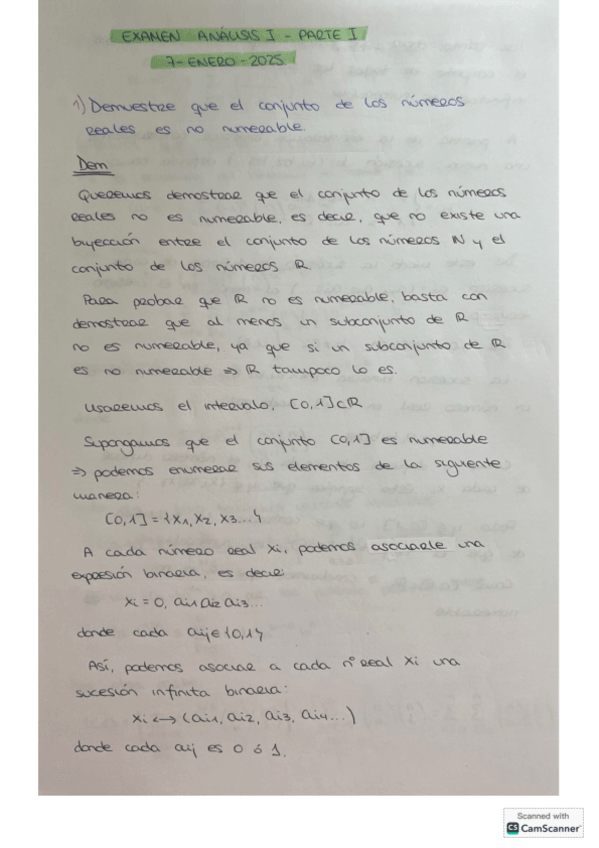 EXAMEN ANÁLISIS I - PARTE I
7-ENERO-2025
1) Demuestre que el conjunto de los números
reales es no numerable.
Dem
Queremos demostrar que el conjunto de los números
reales no es numerable, es decir, que no existe una
biyección entre el conjunto de los números N y el
conjunto de los números ℝ
Para probar que ℝ no es numerable, basta con
demostrar que al menos un subconjunto de ℝ
no es numerable, ya que si un subconjunto de ℝ
es no numerable ⇒ ℝ tampoco lo es.
Usaremos el intervalo, [0,1]⊂ℝ
Supongamos que el conjunto [0,1] es numerable
⇒ podemos enumerar sus elementos de la siguiente
manera:
[0,1] = {x1, x2, x3...}
A cada número real xi, podemos asociarle una
expresión binaria, es decir:
xi = 0, ai1 ai2 ai3...
donde cada aij∈{0,1}
Así, podemos asociar a cada nº real xi una
sucesión infinita binaria:
xi ↔ (ai1, ai2, ai3, ai4...)
donde cada aij es 0 ó 1.
Scanned with
CS CamScanner